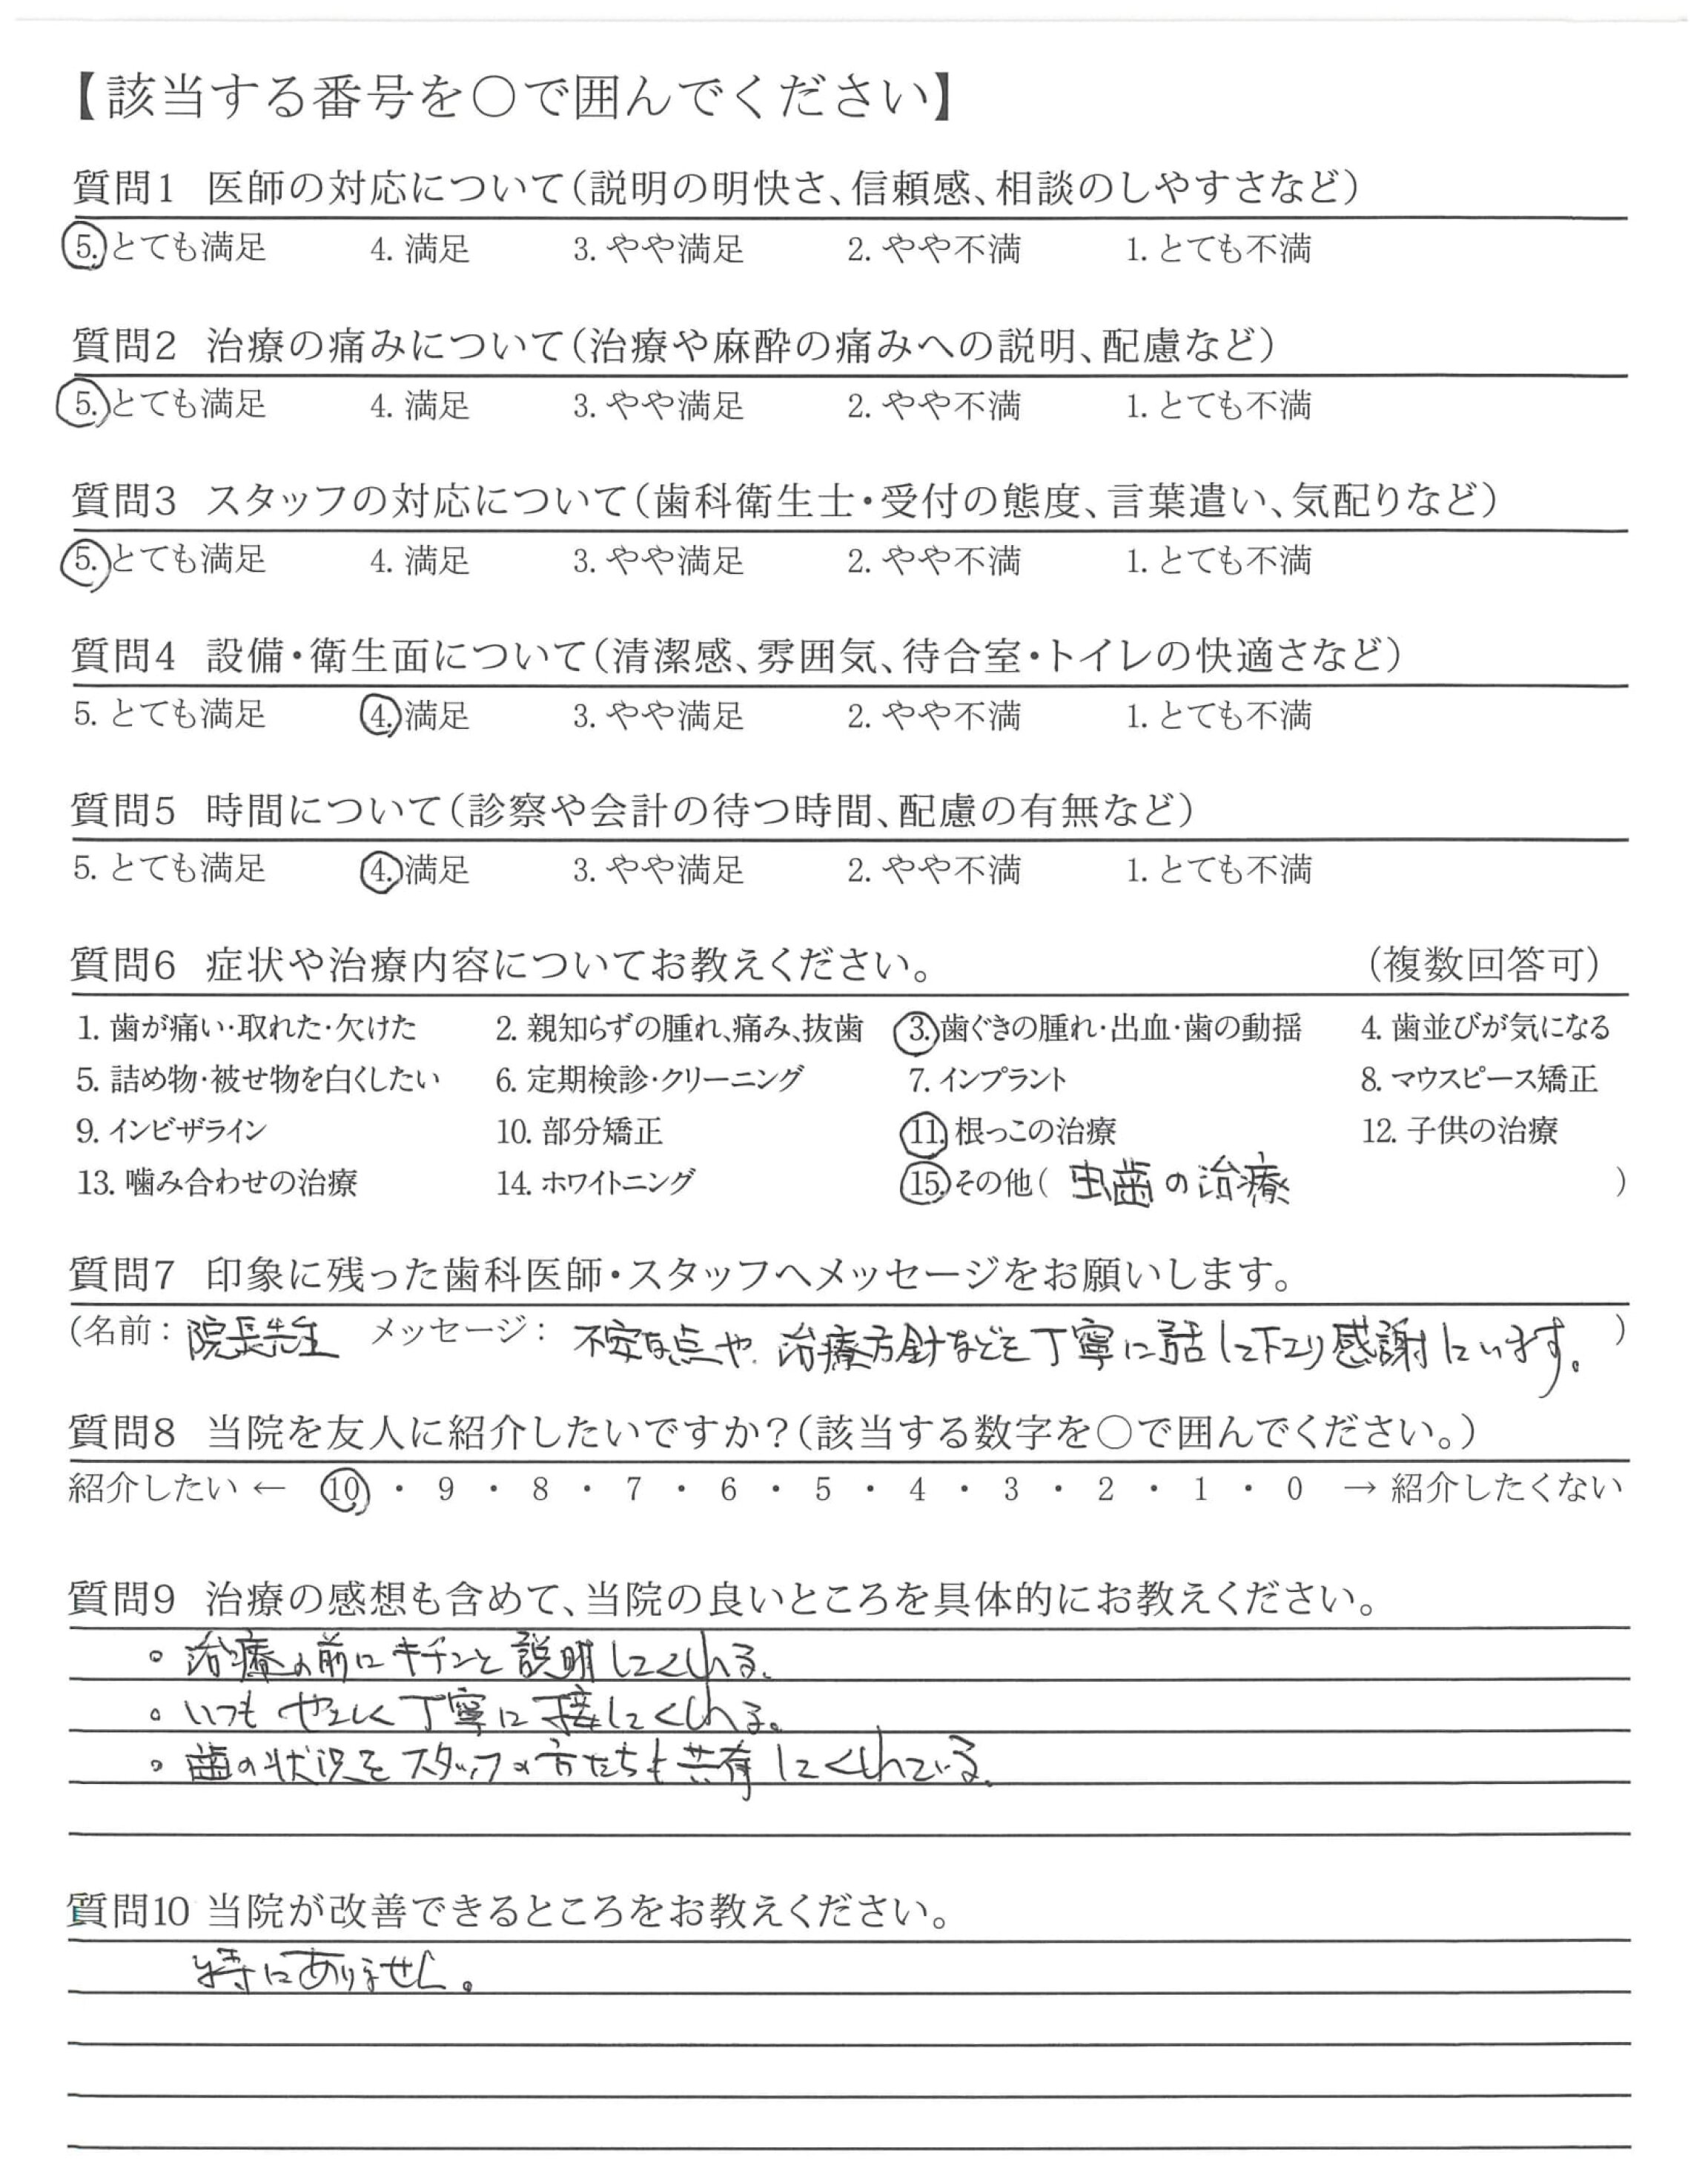 【該当する番号を○で囲んでください】
質問1 医師の対応について(説明の明快さ、信頼感、相談のしやすさなど)
5. とても満足 4. 満足 3. やや満足 2. やや不満 1. とても不満
質問2 治療の痛みについて(治療や麻酔の痛みへの説明、配慮など)
5. とても満足 4. 満足 3. やや満足 2. やや不満 1. とても不満
質問3 スタッフの対応について(歯科衛生士・受付の態度、言葉遣い、気配りなど)
5. とても満足 4. 満足 3. やや満足 2. やや不満 1. とても不満
質問4 設備・衛生面について(清潔感、雰囲気、待合室・トイレの快適さなど)
5. とても満足 4. 満足 3. やや満足 2. やや不満 1. とても不満
質問5 時間について(診察や会計の待つ時間、配慮の有無など)
5. とても満足 4. 満足 3. やや満足 2. やや不満 1. とても不満
質問6 症状や治療内容についてお教えください。 (複数回答可)
1. 歯が痛い・取れた・欠けた 2. 親知らずの腫れ、痛み、抜歯 3. 歯ぐきの腫れ・出血・歯の動揺 4. 歯並びが気になる
5. 詰め物・被せ物を白くしたい 6. 定期検診・クリーニング 7. インプラント 8. マウスピース矯正
9. インビザライン 10. 部分矯正 11. 根っこの治療 12. 子供の治療
13. 噛み合わせの治療 14. ホワイトニング 15. その他( 虫歯の治療 )
質問7 印象に残った歯科医師・スタッフへメッセージをお願いします。
(名前: 院長先生 メッセージ: 不安な点や治療方針などを丁寧に話して下さり感謝しています。 )
質問8 当院を友人に紹介したいですか?(該当する数字を○で囲んでください。)
紹介したい ← 10 ・ 9 ・ 8 ・ 7 ・ 6 ・ 5 ・ 4 ・ 3 ・ 2 ・ 1 ・ 0 → 紹介したくない
質問9 治療の感想も含めて、当院の良いところを具体的にお教えください。
。治療の前にキチンと説明してくれる。
。いつもやさしく丁寧に接してくれる。
。歯の状況をスタッフの方たちも共有してくれている。
質問10 当院が改善できるところをお教えください。
特にありません。